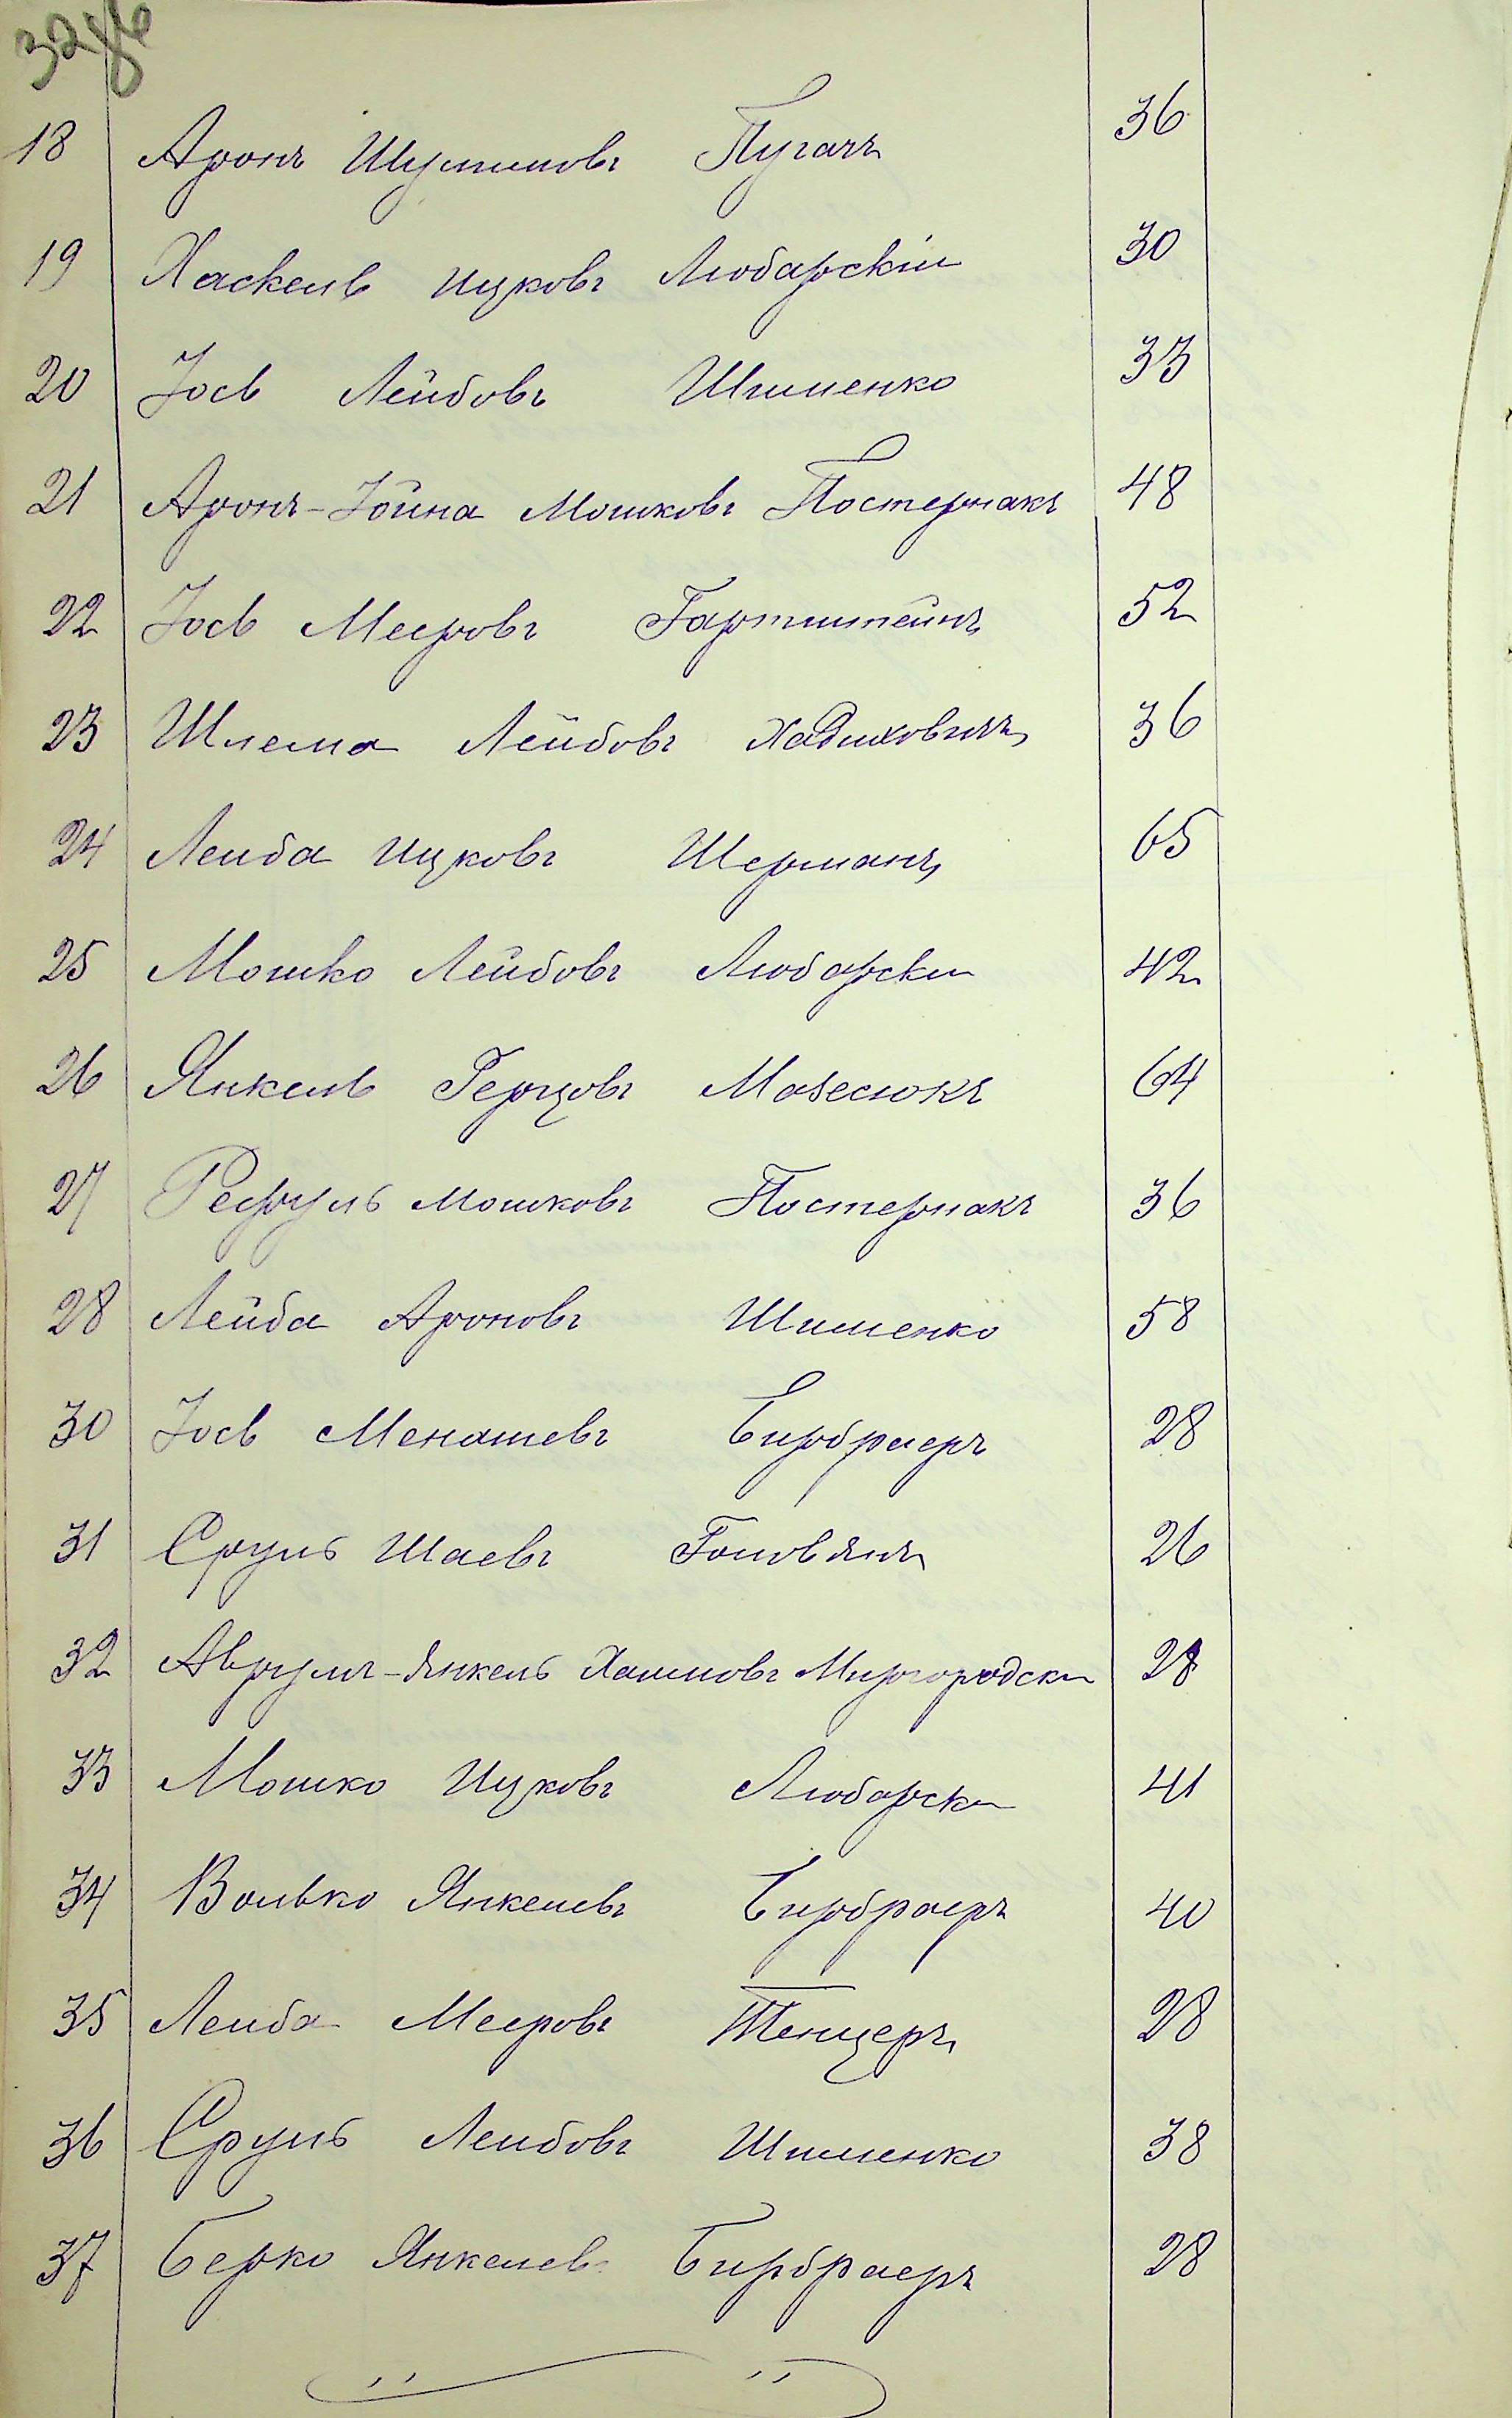 32об
18 Аронъ Шулимовъ Пугачъ 36
19 Хаскель Ицковъ Любарскій 30
20 Іось Лейбовъ Шименко 33
21 Аронъ-Іойна Мошковъ Постернакъ 48
22 Іось Мееровъ Гартштейнъ 52
23 Шлема Лейбовъ Хадиховичъ 36
24 Лейба Ицковъ Шерманъ 65
25 Мошко Лейбовъ Любарски 42
26 Янкель Герцовъ Мовесюкъ 64
27 Рефуль Мошковъ Постернакъ 36
28 Лейба Ароновъ Шименко 58
30 Іось Менашевъ Бирбраеръ 28
31 Сруль Шаевъ Голові 26
32 Аврумъ-Янкель Хаимовъ Миргородски 28
33 Мошко Ицковъ Любарски 41
34 Волько Янкелевъ Бирбраеръ 40
35 Лейба Мееровъ Тенцеръ 28
36 Сруль Лейбовъ Шименко 38
37 Берко Янкелевъ Бирбраеръ 28